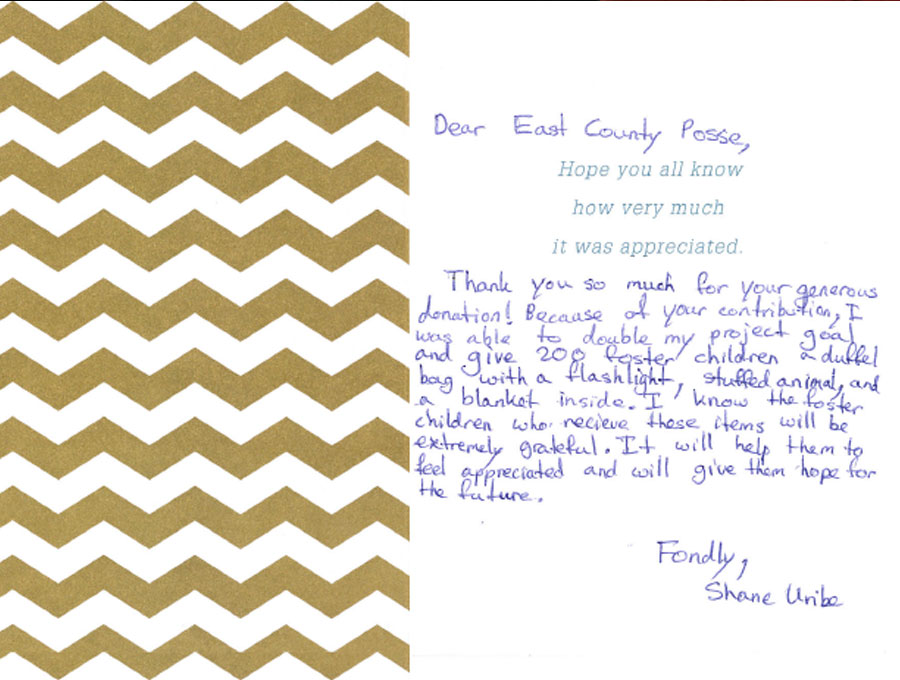 Dear East County Posse,
Hope you all know
how very much
it was appreciated.
Thank you so much for your generous
donation! Because of your contribution, I
was able to double my project goal
and give 200 foster children a duffel
bag with a flashlight, stuffed animal, and
a blanket inside. I know the foster
children who recieve these items will be
extremely grateful. It will help them to
feel appreciated and will give them hope for
the future.
Fondly,
Shane Uribe